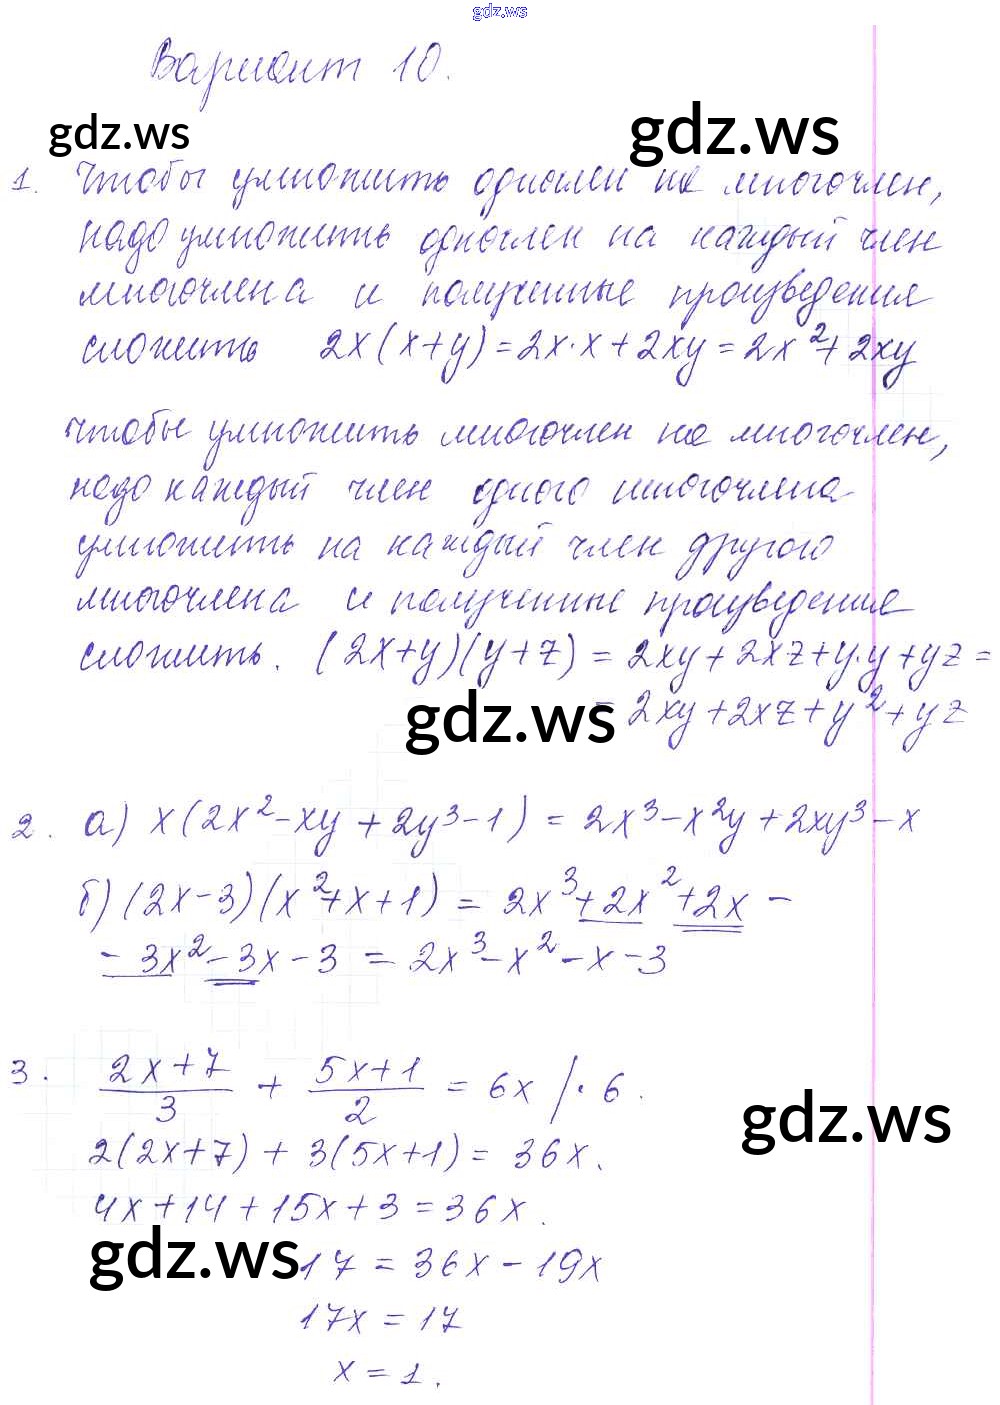 gdz.ws
Вариант 10.
gdz.ws gdz.ws
1. Чтобы умножить одночлен на многочлен,
надо умножить одночлен на каждый член
многочлена и полученные произведения
сложить 2x(x+y)=2x·x+2xy=2x²+2xy
чтобы умножить многочлен на многочлен,
надо каждый член одного многочлена
умножить на каждый член другого
многочлена и полученные произведения
сложить. (2x+y)(y+z) = 2xy+2xz+y·y+yz =
= 2xy+2xz+y²+yz
gdz.ws
2. а) x(2x²-xy+2y³-1) = 2x³-x²y+2xy³-x
б) (2x-3)(x²+x+1) = 2x³+2x²+2x-
-3x²-3x-3 = 2x³-x²-x-3
3. (2x+7)/3 + (5x+1)/2 = 6x /·6.
gdz.ws
2(2x+7)+3(5x+1)=36x.
4x+14+15x+3=36x.
gdz.ws
17=36x-19x
17x=17
x=1.